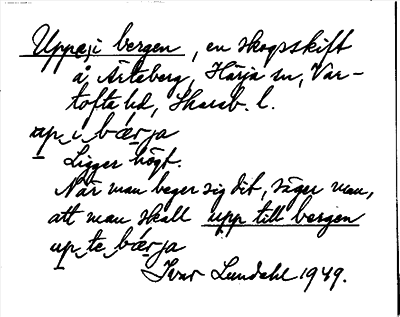 Uppe i bergen, en skogsskift
å Årtaberg, Härja sn, Var-
tofta hd, Skarab. l.
up i bærja
Ligger högt.
När man beger sig dit, säger man,
att man skall upp till bergen
up te bærja
Ivar Lundahl 1949.